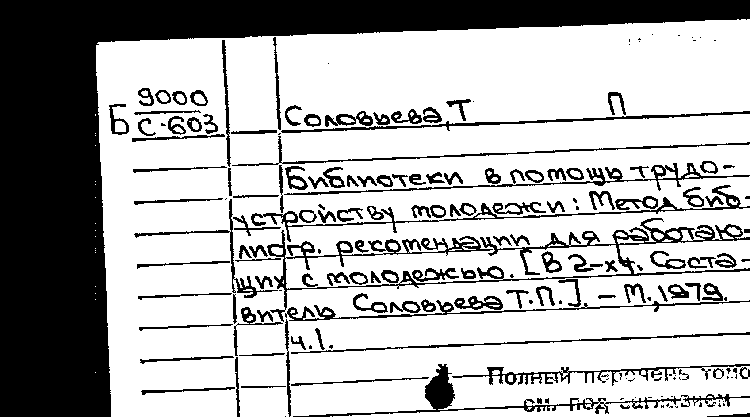 Б 9000
С-603
Соловьева, Т П
Библиотеки в помощь трудо-
устройству молодежи: Метод библ-
лиогр. рекомендации для работаю-
щих с молодежью. [В 2-х ч. Соста-
витель Соловьева Т.П.]. - М., 1979.
ч.1.
Полный перечень томо
см. под заглавием